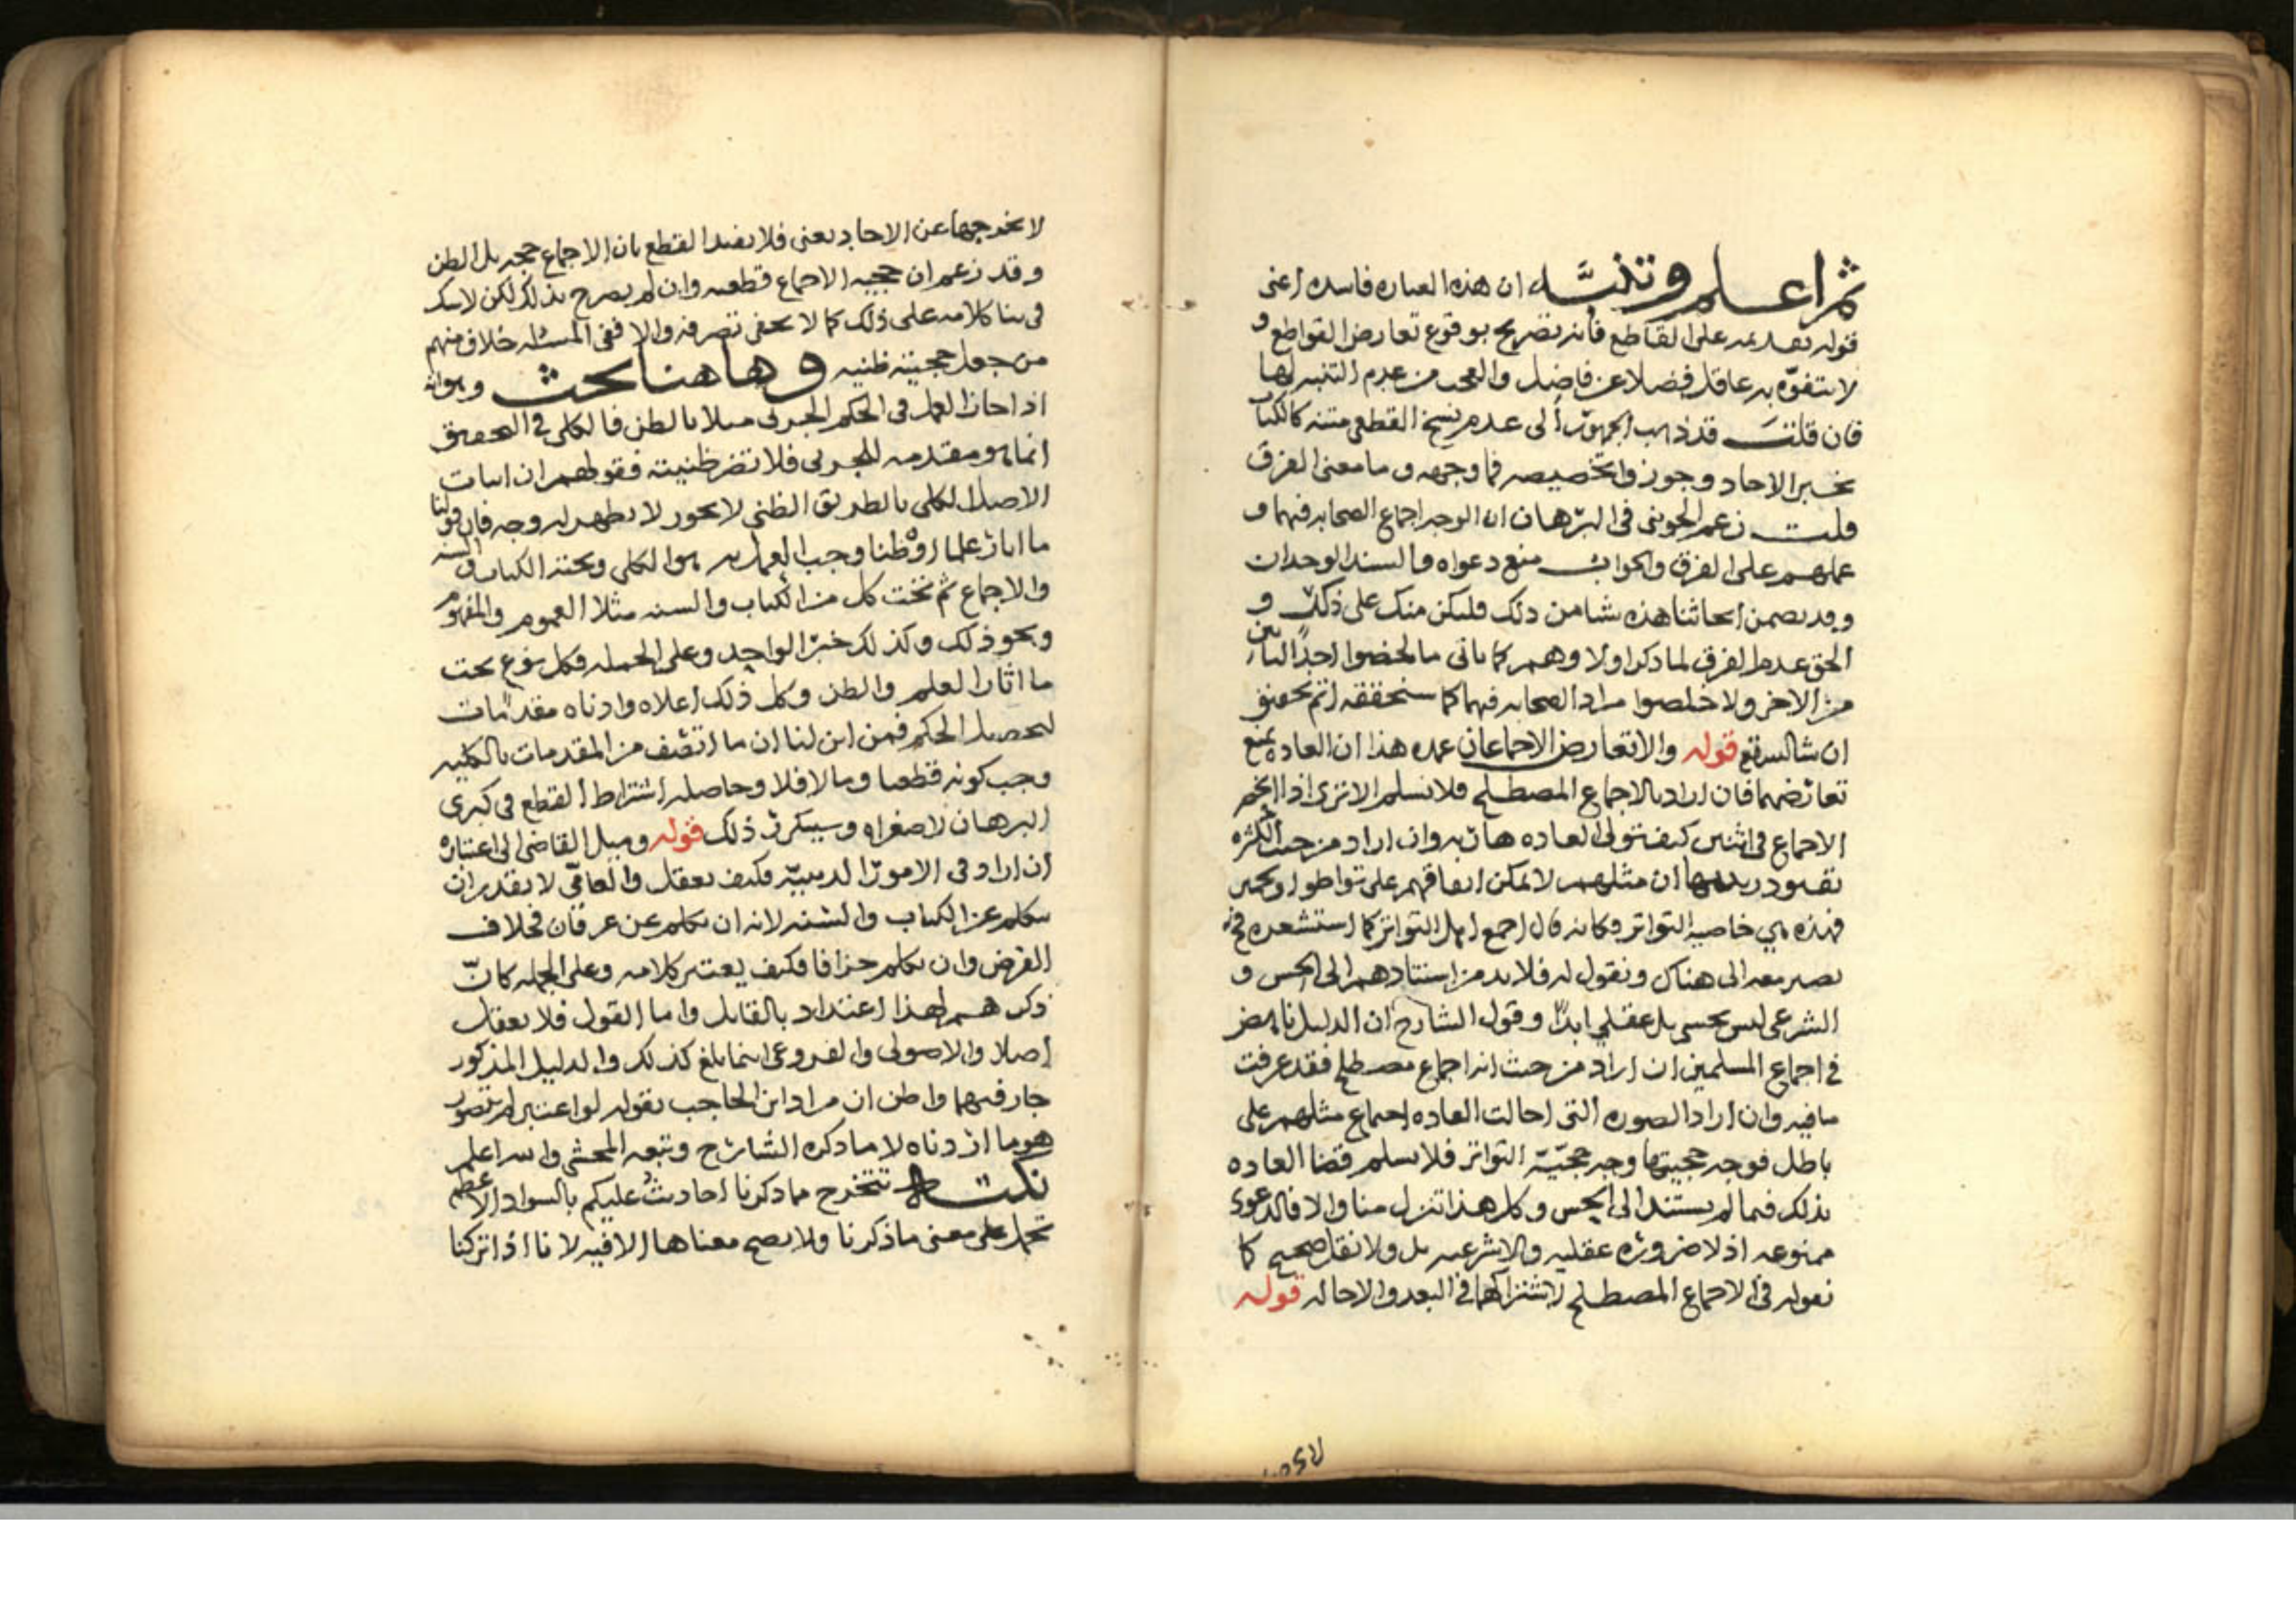 ثم اعلم وتنبه ان هذه العباره فاسده اعنى
قوله تقديمه على القاطع فانه تصريح بوقوع تعارض القواطع و
لا يتفوه به عاقل فضلا عن فاضل والعجب من عدم التنبه لها
فان قلت قد ذهب الجمهور الى عدم نسخ القطعى متنه كالكتاب
بخبر الاحاد وجوزوا تخصيصه فما وجهه وما معنى الفرق
قلت زعم الجوينى فى البرهان ان الوجه اجماع الصحابه فيهما و
عملهم على الفرق والجواب منع دعواه والسند الوجدان
وقد تضمن ابحاثنا هذه شيا من ذلك فليكن منك على ذكر و
الحق عدم الفرق لما ذكر اولا وهم كما ياتى ما لخصوا احد البابين
من الاخر ولا خلصوا مراد الصحابه فيهما كما سنحققه اتم تحقيق
ان شا الله تع قوله والا تعارض الاجماعان عمده هذا ان العاده تمنع
تعارضهما فان اراد بالاجماع المصطلح فلا نسلم الا ترى اذا انحصر
الاجماع فى اثنين كيف تتولى العاده هاربه وان اراد من حيث الكثره
بقيود ان مثلهم لا يمكن اتفاقهم على تواطو
فهذه هي خاصيه التواتر فكانه قال اجمع اهل التواتر كما استشعره فح
نصير معه الى هناك ونقول له فلا بد من استنادهم الى الحس و
الشرعى ليس بحسى بل عقلي ابدا وقول الشارح ان الدليل ناهض
فى اجماع المسلمين ان اراد من حيث انه اجماع مصطلح فقد عرفت
ما فيه وان اراد الصوره التى احالت العاده اجماع مثلهم على
باطل فوجه حجيتها وجه حجيّة التواتر فلا نسلم قضا العاده
بذلك فيما لم يستند الى الحس وكل هذا تنزل منا والا فالدعوى
ممنوعه اذ لا ضروره عقليه ولا شرعيه بل ولا نقل صحيح كما
نقوله فى الاجماع المصطلح لاشتراكهما فى البعد والاحاله قوله
لا يخرجها عن الاحاد يعنى فلا يفيد القطع بان الاجماع حجه بل الظن
وقد زعم ان حجيه الاجماع قطعيه وان لم يصرح بذلك لكن لا شك
فى بنا كلامه على ذلك كما لا يخفى تصرفه والا ففى المسئله خلاف منهم
من جعل حجيته ظنيه وها هنا بحث وهو انه
اذا جاز العمل فى الحكم الجزئى مثلا بالظن فالكلى فى التحقيق
انما هو مقدمه للجزئى فلا تضر ظنيته فقولهم ان اثبات
الاصل الكلى بالطريق الظني لا يجوز لا يظهر له وجه فان قولنا
ما اثار علما او ظنا وجب العمل به هو الكلى وتحته الكتاب والسنه
والاجماع ثم تحت كل من الكتاب والسنه مثلا العموم والمفهوم
ونحو ذلك وكذلك خبر الواحد وعلى الجمله فكل نوع تحت
ما اثار العلم والظن وكل ذلك اعلاه وادناه مقدمات
لتحصيل الحكم فمن اين لنا ان ما اتصف من المقدمات بالكليه
وجب كونه قطعيا وما لا فلا وحاصله اشتراط القطع فى كبرى
البرهان لا صغراه وسيكرر ذلك قوله وميل القاضى الى اعتباره
ان اراد فى الامور الدينيّه فكيف يعقل والعامّي لا يقدر ان
يتكلم عن الكتاب والسنه لانه ان تكلم عن عرفان فخلاف
الفرض وان تكلم جزافا فكيف يعتبر كلامه وعلى الجمله كانّ
ذكرهم لهذا اعتداد بالقايل واما القول فلا يعقل
اصلا والاصولى والفروعى انما بلغ كذلك والدليل المذكور
جار فيهما واظن ان مراد ابن الحاجب بقوله لو اعتبر لم يتصور
هو ما اردناه لا ما ذكره الشارح وتبعه المحشى والله اعلم
نكته تتخرج مما ذكرنا احاديث عليكم بالسواد الاعظم
تحمل على معنى ما ذكرنا ولا يصح معناها الا فيه لانا اذا تركنا